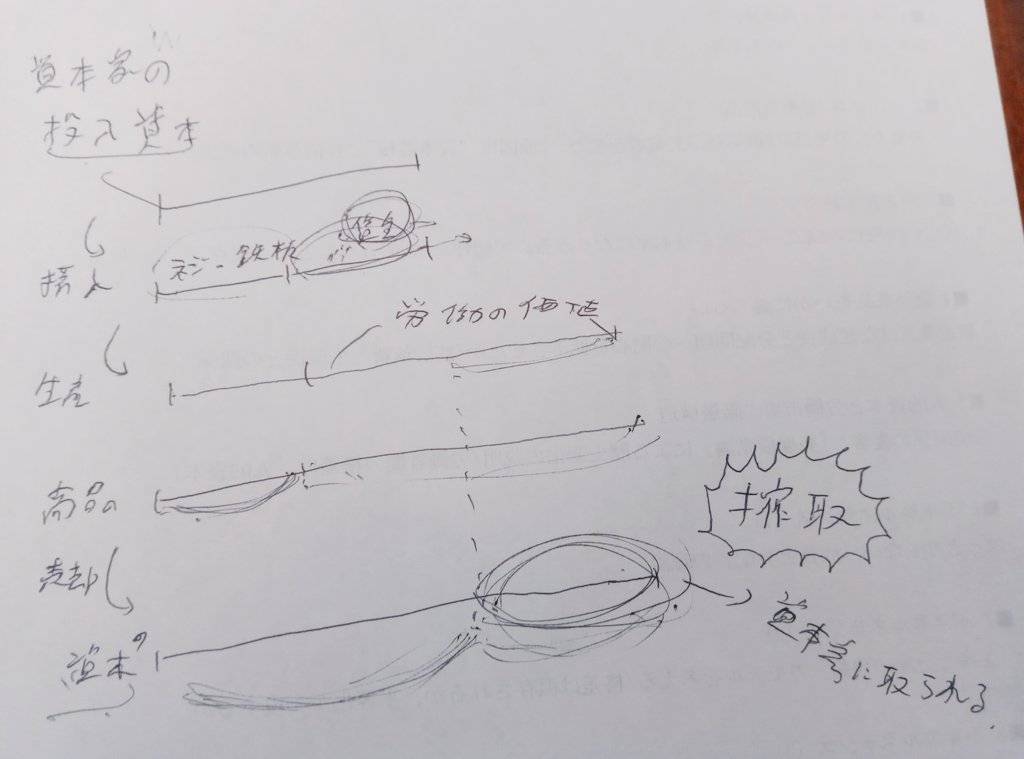 資本家の
投入資本
購入
ネジ 鉄板
賃金
労働の価値
生産
商品の
売却
搾取
資本の
資本家に取られる。